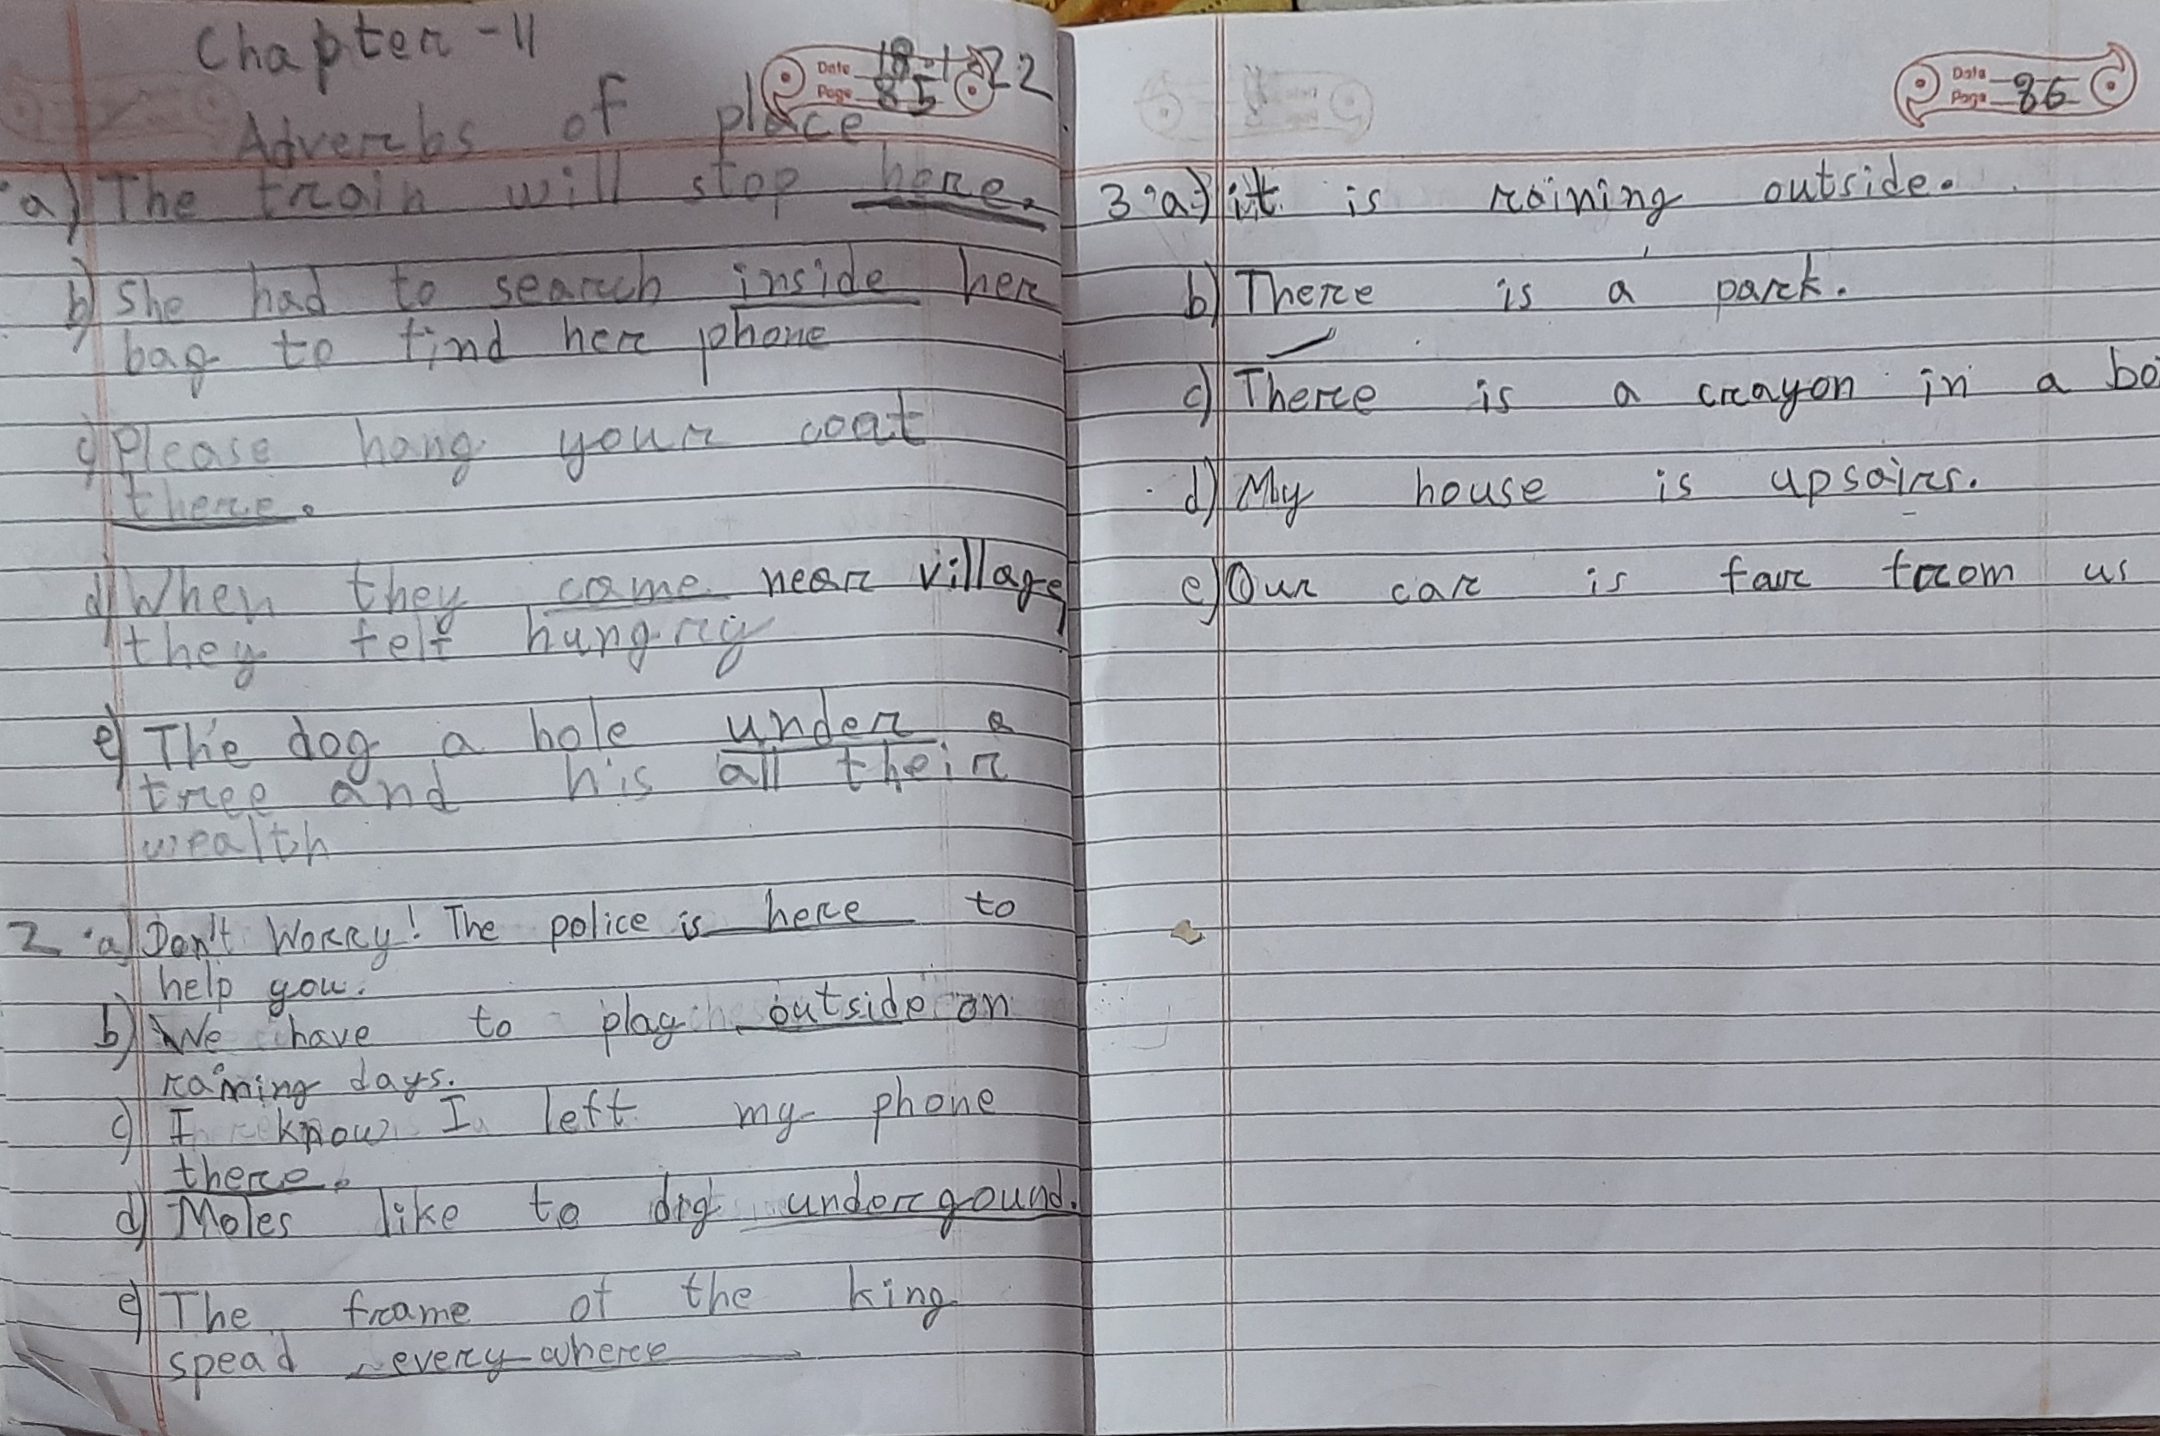 Chapter - 11
Date 18-1-22
Page 85
Adverbs of place
a) The train will stop here.
b) She had to search inside her
bag to find her phone
c) Please hang your coat
there.
d) When they came near village,
they felt hungry
e) The dog a hole under a
tree and his all their
wealth
2 a) Don't Worry! The police is here to
help you.
b) We have to play outside on
raining days.
c) I know I left my phone
there.
d) Moles like to dig undergound.
e) The frame of the king
spead everywhere
Date
Page 86
3 a) it is raining outside.
b) There is a park.
c) There is a crayon in a bo
d) My house is upsairs.
e) Our car is far from us